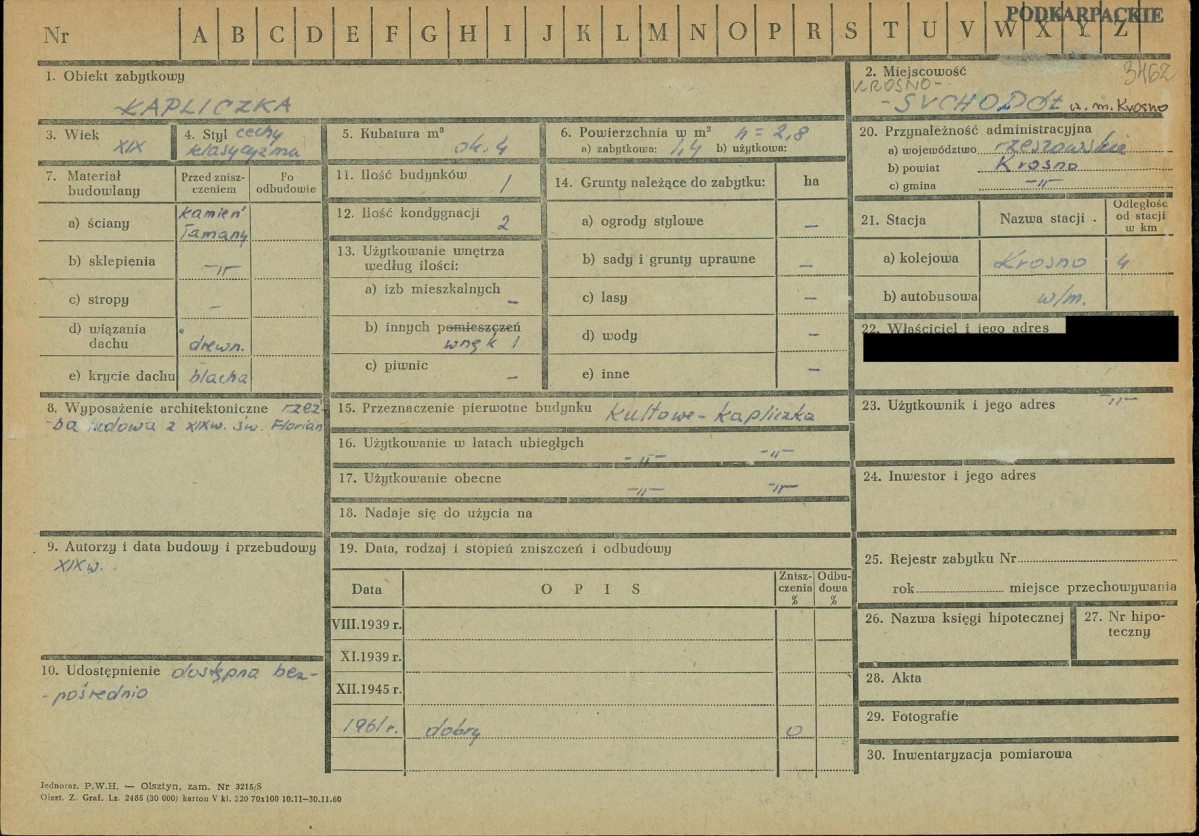 PODKARPACKIE
Nr A B C D E F G H I J K L M N O P R S T U V W X Y Z
3462
1. Obiekt zabytkowy
KAPLICZKA
2. Miejscowość
KROSNO-
-SUCHODÓŁ u. m. Krosno
3. Wiek
XIX
4. Styl cechy
klasycyzmu
5. Kubatura m³
ok. 4
6. Powierzchnia w m² h = 2,8
a) zabytkowa: 1,4 b) użytkowa:
20. Przynależność administracyjna
a) województwo rzeszowskie
b) powiat Krosno
c) gmina -"-
7. Materiał budowlany
Przed zniszczeniem
Po odbudowie
a) ściany kamień
łamany
b) sklepienia -"-
c) stropy -
d) wiązania
dachu drewn.
e) krycie dachu blacha
11. Ilość budynków 1
12. Ilość kondygnacji 2
13. Użytkowanie wnętrza
według ilości:
a) izb mieszkalnych -
b) innych pomieszczeń
wnęk 1
c) piwnic -
14. Grunty należące do zabytku: ha
a) ogrody stylowe -
b) sady i grunty uprawne -
c) lasy -
d) wody -
e) inne -
21. Stacja
Nazwa stacji
Odległość
od stacji
w km
a) kolejowa Krosno 4
b) autobusowa w/m.
22. Właściciel i jego adres
8. Wyposażenie architektoniczne rzeź-
-ba ludowa z XIXw. św. Florian
15. Przeznaczenie pierwotne budynku kultowe - kapliczka
16. Użytkowanie w latach ubiegłych
-"- -"-
17. Użytkowanie obecne
-"- -"-
18. Nadaje się do użycia na
23. Użytkownik i jego adres -"-
24. Inwestor i jego adres
9. Autorzy i data budowy i przebudowy
XIX w.
10. Udostępnienie dostępna bez-
-pośrednio
19. Data, rodzaj i stopień zniszczeń i odbudowy
Data
OPIS
Znisz-
czenia
%
Odbu-
dowa
%
VIII.1939 r.
XI.1939 r.
XII.1945 r.
1961 r. dobry 0
25. Rejestr zabytku Nr
rok miejsce przechowywania
26. Nazwa księgi hipotecznej
27. Nr hipo-
teczny
28. Akta
29. Fotografie
30. Inwentaryzacja pomiarowa
Jednoraz. P.W.H. — Olsztyn, zam. Nr 3215/S
Olszt. Z. Graf. Lz. 2485 (30 000) karton V kl. 220 70x100 10.11—30.11.60